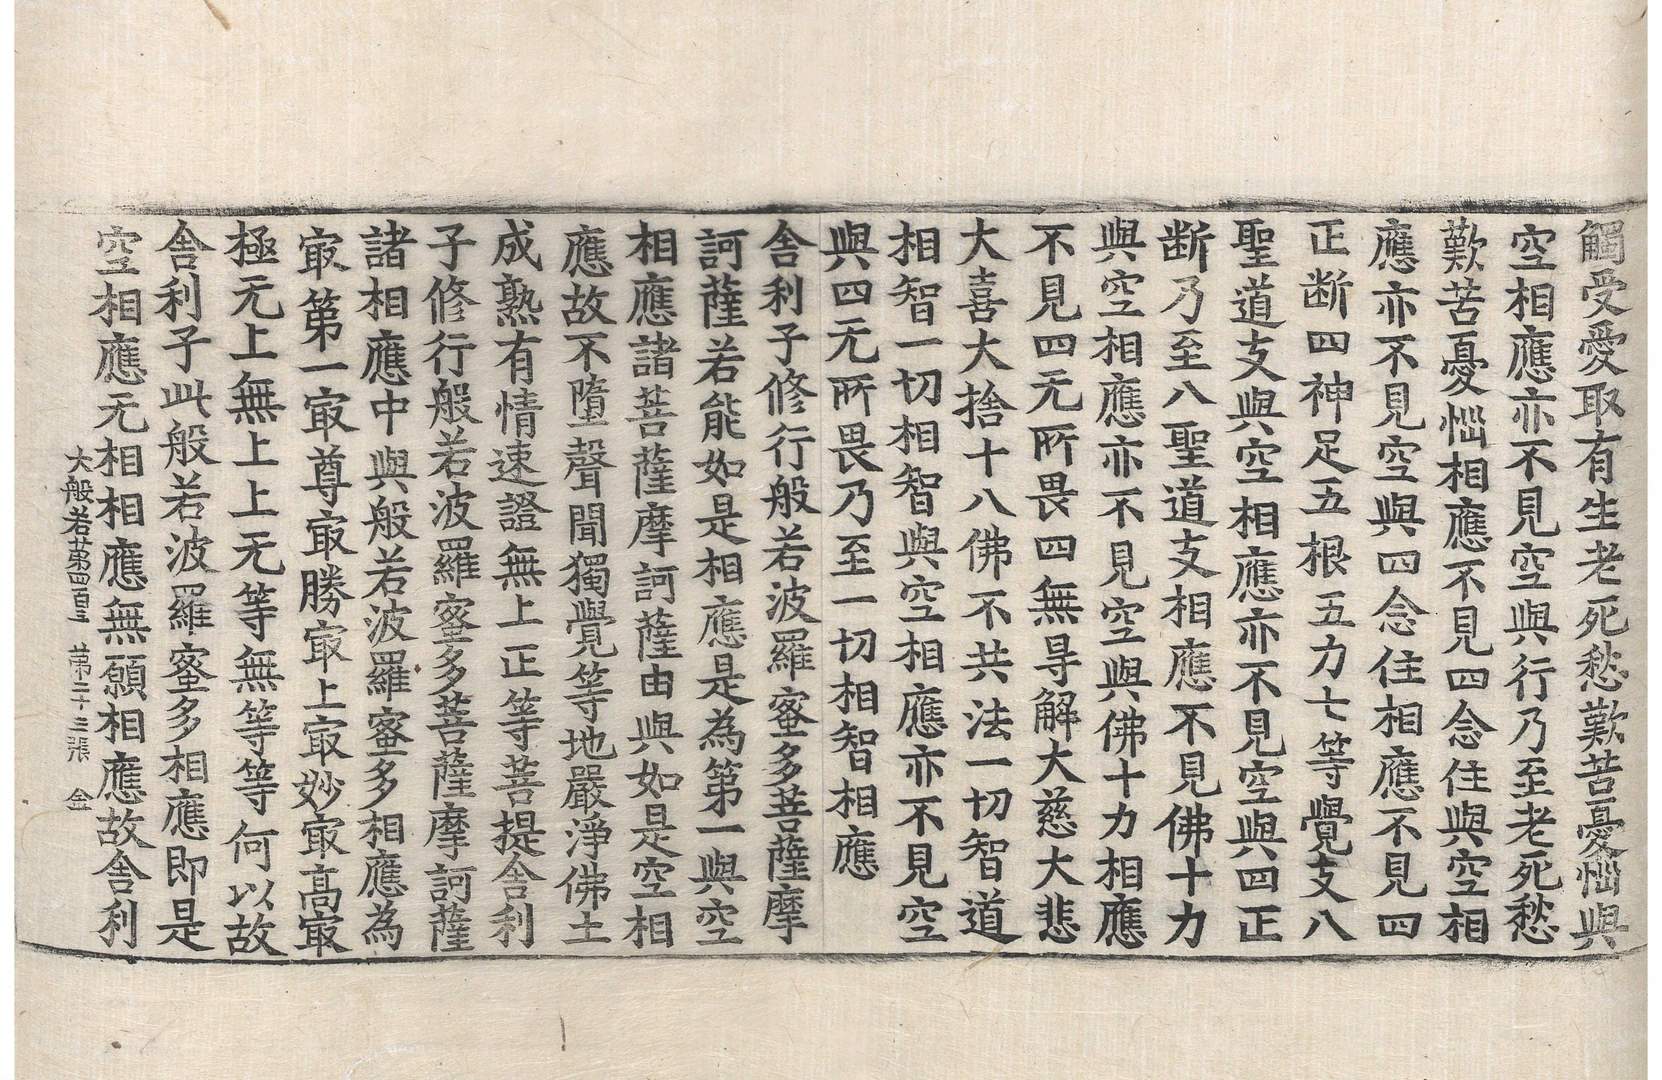 觸受愛取有生老死愁歎苦憂惱與
空相應亦不見空與行乃至老死愁
歎苦憂惱相應不見四念住與空相
應亦不見空與四念住相應不見四
正断四神足五根五力七等覺支八
聖道支與空相應亦不見空與四正
断乃至八聖道支相應不見佛十力
與空相應亦不見空與佛十力相應
不見四无所畏四無㝵解大慈大悲
大喜大捨十八佛不共法一切智道
相智一切相智與空相應亦不見空
與四无所畏乃至一切相智相應
舍利子修行般若波羅蜜多菩薩摩
訶薩若能如是相應是為第一與空
相應諸菩薩摩訶薩由與如是空相
應故不墮聲聞獨覺等地嚴淨佛土
成熟有情速證無上正等菩提舍利
子修行般若波羅蜜多菩薩摩訶薩
諸相應中與般若波羅蜜多相應為
㝡第一㝡尊㝡勝㝡上㝡妙㝡高㝡
極无上無上上无等無等等何以故
舍利子此般若波羅蜜多相應即是
空相應无相相應無願相應故舍利
大般若第四百二 第二十三張 金